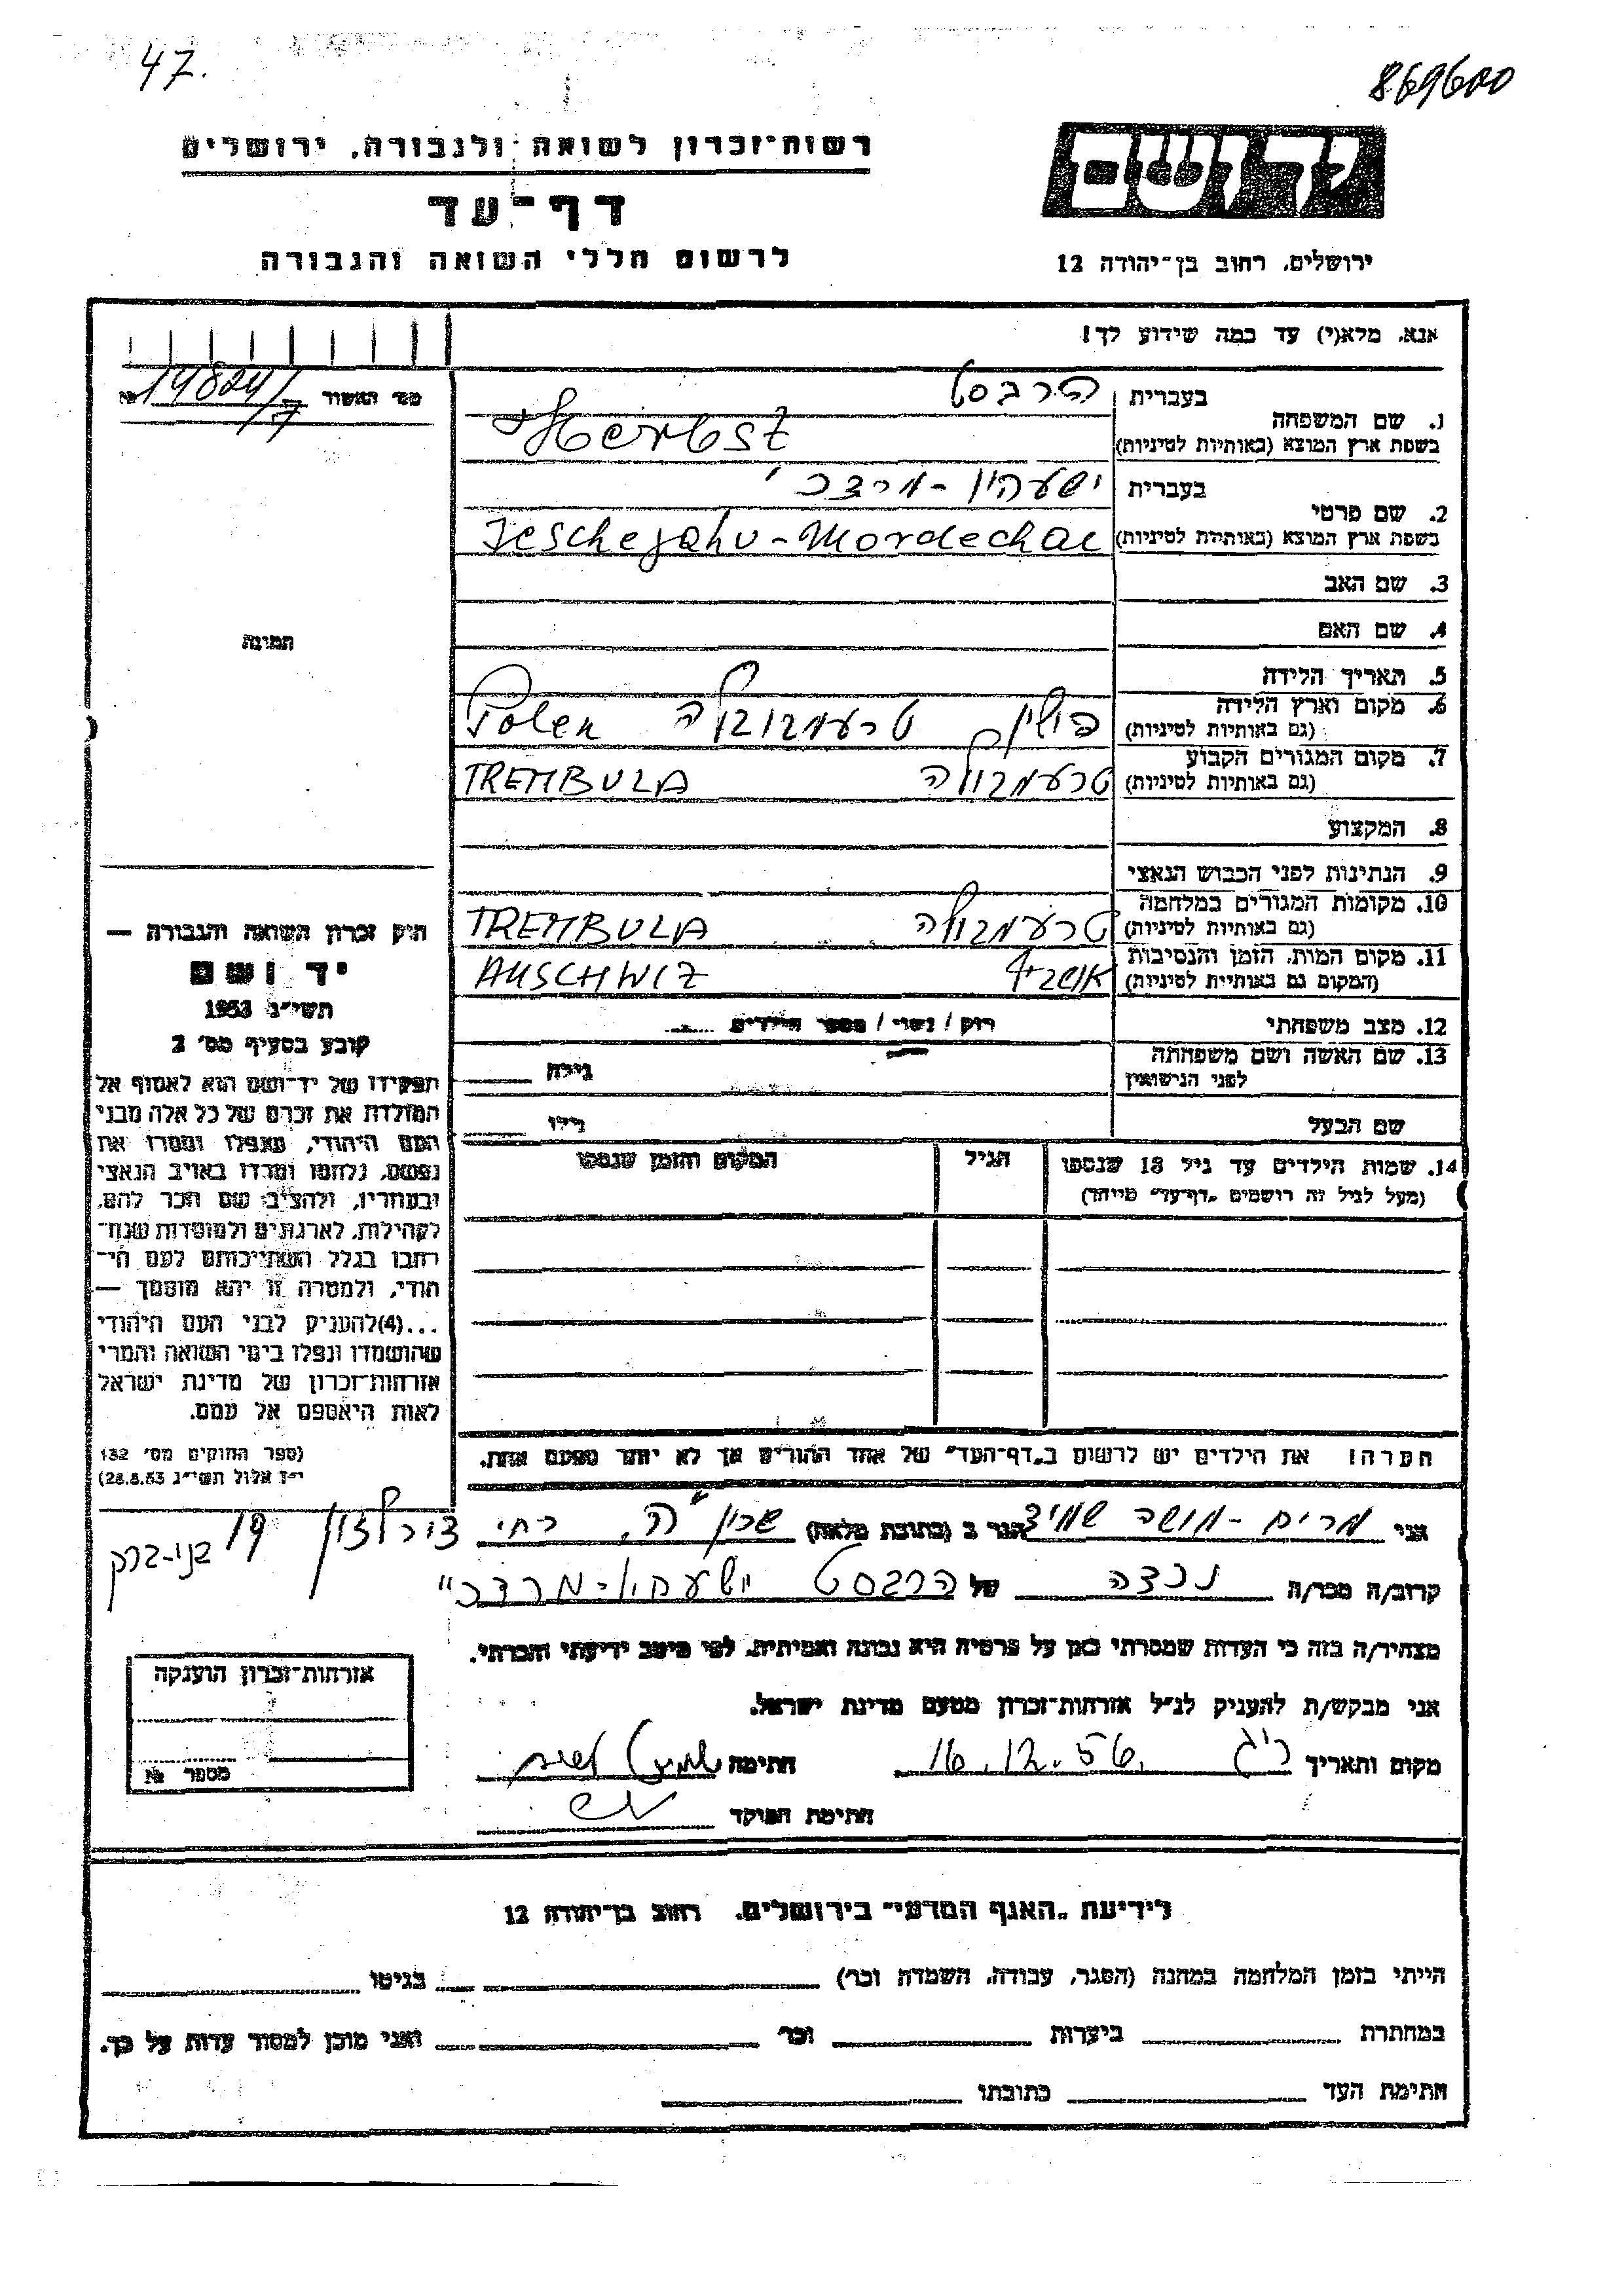 47.
869600
רשות-זכרון לשואה ולגבורה, ירושלים
דף-עד
לרשום חללי השואה והגבורה
יד ושם
ירושלים, רחוב בן-יהודה 12
אנא, מלא(י) עד כמה שידוע לך!
מס' האשור № 19824/7
1. שם המשפחה
בעברית הרבסט
בשפת ארץ המוצא (באותיות לטיניות) Herbst
2. שם פרטי
בעברית ישעהיו - מרדכי
בשפת ארץ המוצא (באותיות לטיניות) Jeschejahu - Mordechae
3. שם האב
4. שם האם
5. תאריך הלידה
6. מקום וארץ הלידה
(גם באותיות לטיניות) פולין טרעמבובלה Polen
7. מקום המגורים הקבוע
(גם באותיות לטיניות) טרעמבולה TREMBULA
8. המקצוע
9. הנתינות לפני הכבוש הנאצי
10. מקומות המגורים במלחמה
(גם באותיות לטיניות) טרעמבולה TREMBULA
11. מקום המות, הזמן והנסיבות
(המקום גם באותיות לטיניות) אושביץ AUSCHWIZ
12. מצב משפחתי רוק / נשוי / מספר הילדים
13. שם האשה ושם משפחתה
לפני הנישואין גילה
שם הבעל גילו
14. שמות הילדים עד גיל 18 שנספו
(מעל לגיל זה רושמים "דף-עד" מיוחד)
הגיל
המקום והזמן שנספו
הערה! את הילדים יש לרשום ב"דף-העד" של אחד ההורים אך לא יותר מפעם אחת.
תמונה
חוק זכרון השואה והגבורה —
יד ושם
תשי"ג 1953
קובע בסעיף מס' 2
תפקידו של יד-ושם הוא לאסוף אל
המולדת את זכרם של כל אלה מבני
העם היהודי, שנפלו ומסרו את
נפשם, נלחמו ומרדו באויב הנאצי
ובעוזריו, ולהציב שם וזכר להם,
לקהילות, לארגונים ולמוסדות שנח-
רבו בגלל השתייכותם לעם הי-
הודי, ולמטרה זו יהא מוסמך —
...(4)להעניק לבני העם היהודי
שהושמדו ונפלו בימי השואה והמרי
אזרחות-זכרון של מדינת ישראל
לאות היאספם אל עמם.
(ספר החוקים מס' 132
י"ז אלול תשי"ג 28.8.53)
אני מרים - מושה שמיד הגר ב (כתובת מלאה) שכון ה', רחי 19
בני-ברק
קרוב/ה מכר/ה נכדה של הרבסט ישעהיו - מרדכי
מצהיר/ה בזה כי העדות שמסרתי כאן על פרטיה היא נכונה ואמיתית, לפי מיטב ידיעתי והכרתי.
אני מבקש/ת להעניק לנ"ל אזרחות-זכרון מטעם מדינת ישראל.
מקום ותאריך ר"ג 16.12.56. חתימה
חתימת הפוקד
אזרחות-זכרון הוענקה
מספר №
לידיעת "האגף המדעי" בירושלים, רחוב בן-יהודה 12
הייתי בזמן המלחמה במחנה (הסגר, עבודה, השמדה וכו') בגיטו
במחתרת ביערות וכו' ואני מוכן למסור עדות על כך.
חתימת העד כתובתו